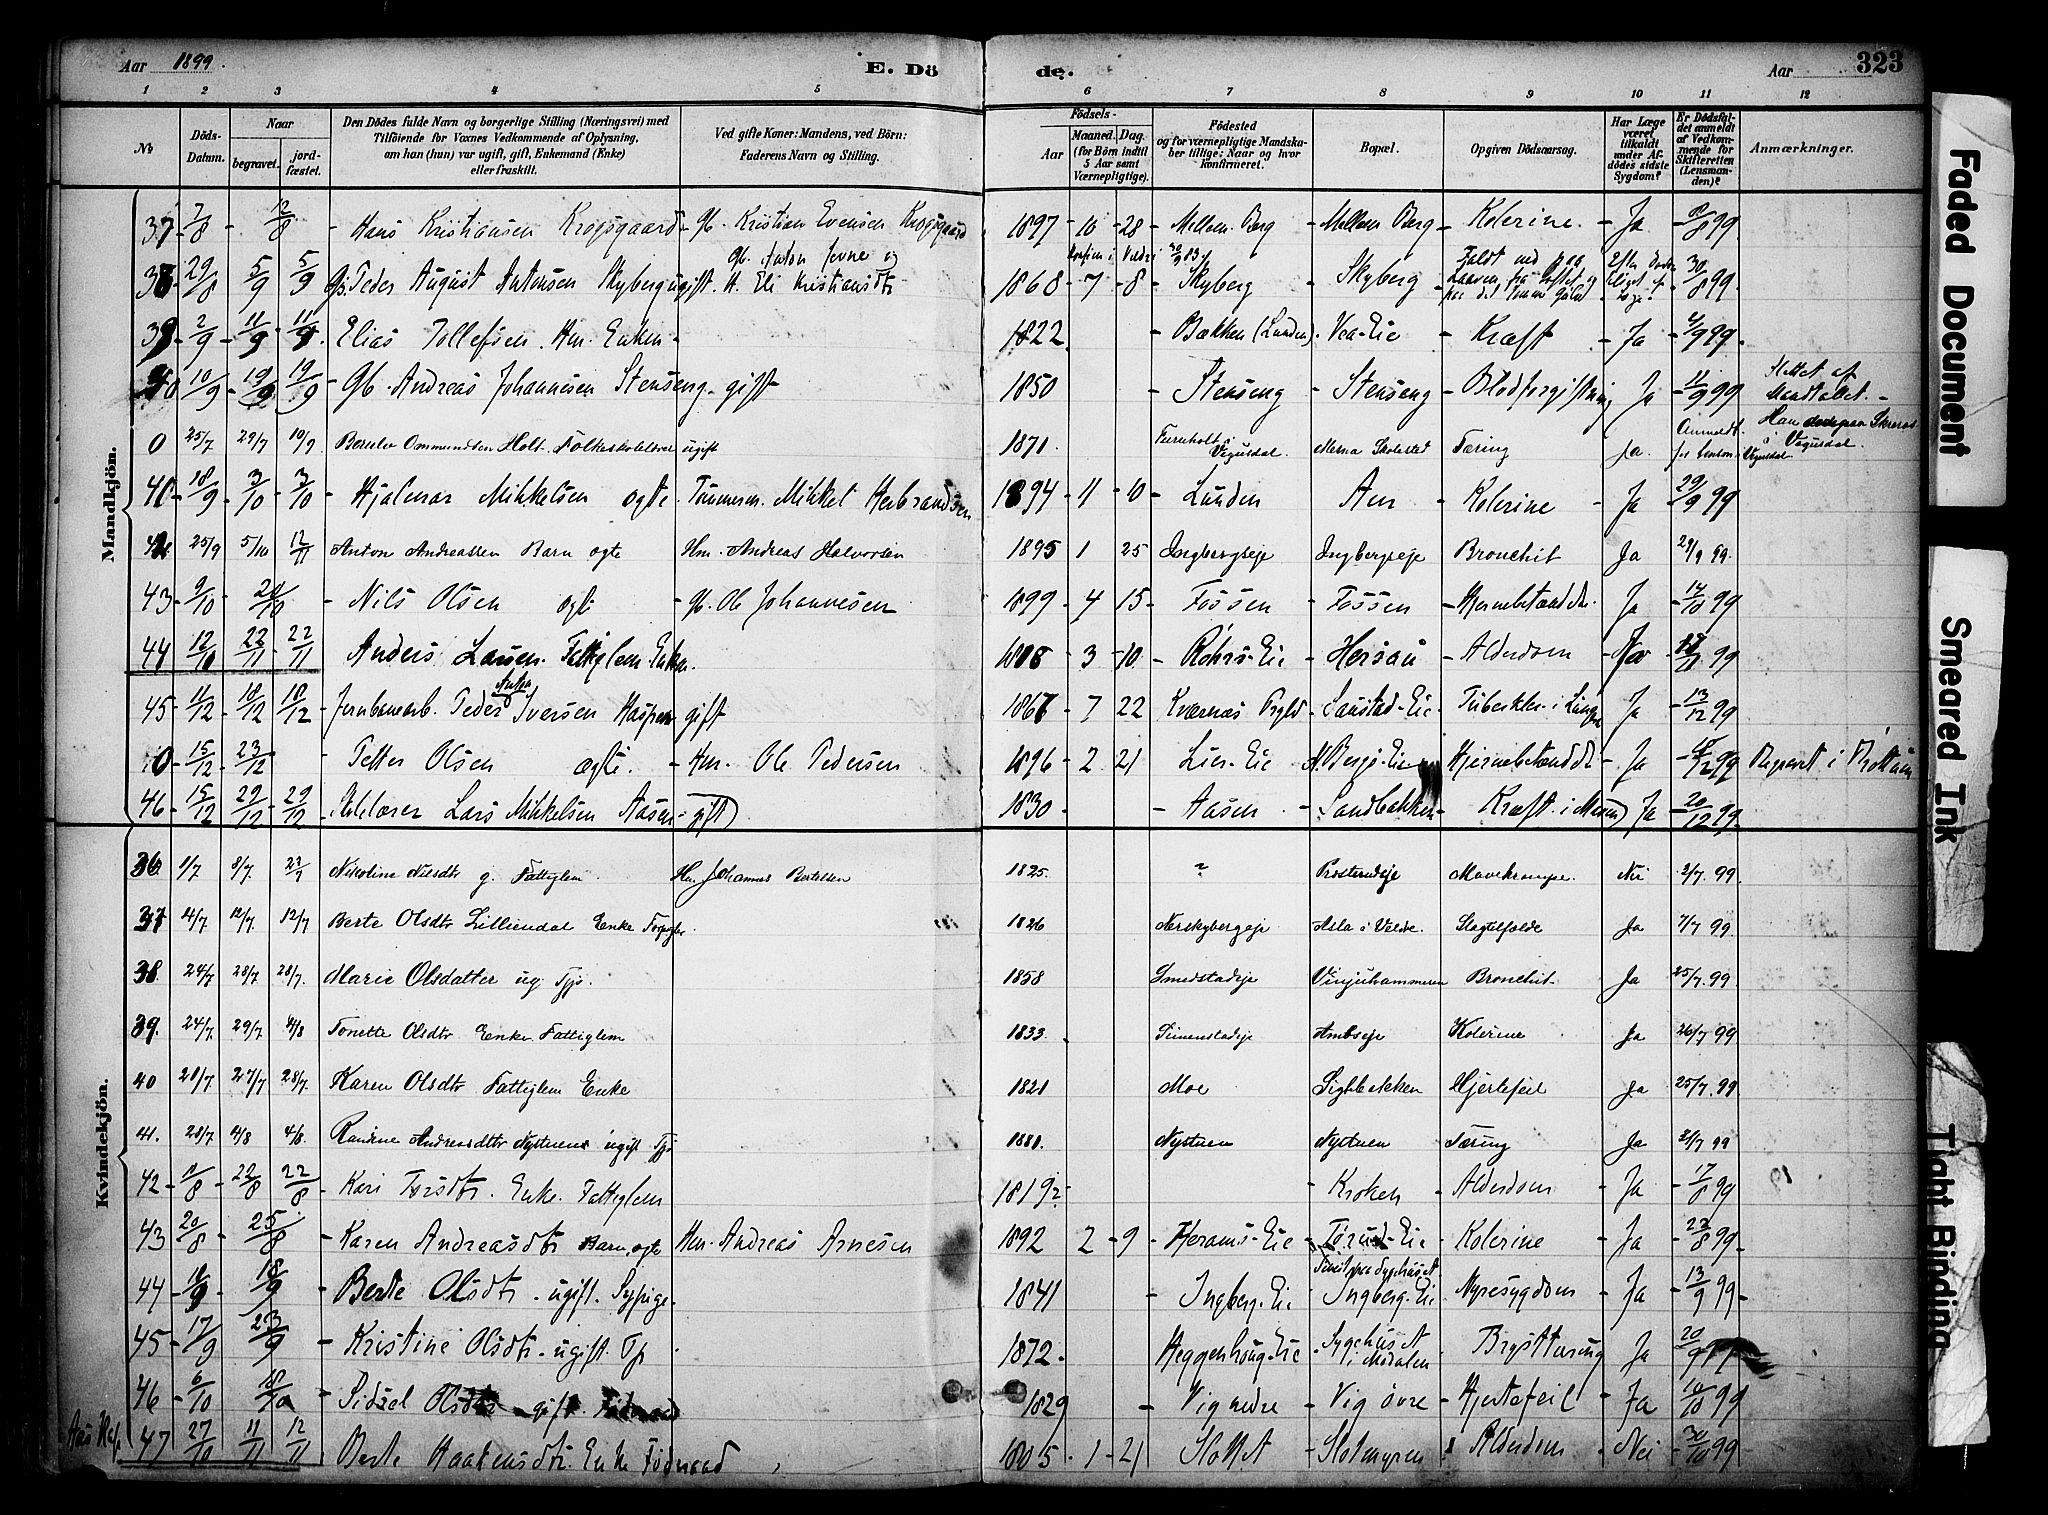 Aar 1899. E. Döde. Aar 323
1 2 3 4 5 6 7 8 9 10 11 12
No
Döds-Datum.
Naar
begravet.
jordfæstet.
Den Dödes fulde Navn og borgerlige Stilling (Næringsvei) med
Tilföiende for Voxnes Vedkommende af Oplysning,
om han (hun) var ugift, gift, Enkemand (Enke)
eller fraskilt.
Ved gifte Koner: Mandens, ved Börn:
Faderens Navn og Stilling.
Födsels-
Aar
Maaned. Dag.
(for Börn indtil
5 Aar samt
Værnepligtige).
Födested
og for værnepligtige Mandskaber tillige: Naar og hvor
konfirmeret.
Bopæl.
Opgiven Dödsaarsag.
Har Læge
været
tilkaldt
under Afdödes sidste
Sygdom?
Er Dödsfaldet anmeldt
af Vedkommende for
Skifteretten
(Lensmanden)?
Anmærkninger.
Mandkjön.
37 7/8 12/8 Hans Kristiansen Krogsgaard Gb. Kristian Evensen Krogsgaard 1897 10 28 Mellem Berg Mellem Berg Kolerine Ja 99
38 29/8 5/9 5/9 Gs. Peder August Antonsen Skyberg ugift Gb. Anton Jevne og H. Eli Kristiansdtr 1868 7 8 Skyberg Skyberg Ja 30/8 99
39 2/9 11/9 11/9 Elias Tollefsen Hm. Enkem 1822 Bækken (Lunden) Vea-Eie Kræft Ja 4/9 99
40 10/9 19/9 19/9 Gb. Andreas Johannesen Stenseng gift 1850 Stenseng Stenseng Blodforgiftning Ja 11/9 99 Slettet af Mandtallet.
0 25/7 29/7 10/9 Ommundsen Holt Folkeskolelærer ugift 1871 Vegusdal Tæring Ja Vegusdal
41 18/9 3/10 3/10 Hjalmar Mikkelsen ægte Tømmerm. Mikkel Herbrandsen 1894 11 10 Lunden Aen Kolerine Ja 29/9 99
42 25/9 5/10 12/11 Anton Andreassen Barn ægte Hm. Andreas Halvorsen 1895 1 25 Ingbergseje Ingbergseje Bronchit Ja 29/9 99
43 9/10 20/10 Nils Olsen ægte Gb. Ole Johannesen 1899 4 15 Fossen Fossen Hjernebetændelse Ja 14/10 99
44 12/10 22/11 22/11 Anders Larsen Fattiglem Enkem. 3 10 Røhrs-Eie Hersau Alderdom Nei 99
45 11/12 18/12 18/12 Jernbanearb. Peder Anton Iversen Haspen gift 1867 7 22 Kværnæs Sanstad-Eie Tuberkler i Lunge Ja 13/12 99
0 15/12 23/12 Petter Olsen ægte Hm. Ole Pedersen 1896 2 21 Lier-Eie N. Bergs-Eie Hjernebetændelse Ja 99 Begravet i Brøttum
46 15/12 29/12 29/12 Skolelærer Lars Mikkelsen Aasen gift 1830 Aasen Sandbakken Kræft i Maven Ja 20/12 99
Kvindekjön.
36 1/7 8/7 23/7 Nikoline Nilsdtr g. Fattiglem Hm. Johannes Bertelsen 1825 ? Prosterudeje Mavekrampe Nei 2/7 99
37 4/7 12/7 12/7 Berte Olsdtr Lilliendal Enke 1826 Nerskybergeje Asla i Veldre Slagtilfælde Ja 7/7 99
38 24/7 28/7 28/7 Marie Olsdatter ug. Tjp. 1858 Smedstadeje Vingerhammeren Bronchit Ja 25/7 99
39 24/7 29/7 4/8 Tonette Olsdtr Enke Fattiglem 1833 Simenstadeje Ambseje Kolerine Ja 26/7 99
40 21/7 27/7 28/7 Karen Olsdtr Fattiglem Enke 1821 Moe Sigbbakken Hjertefeil Ja 25/7 99
41 28/7 4/8 4/8 Randine Andreasdtr Nystuen ugift Tjp 1881 Nystuen Nystuen Tæring Ja 99
42 11/8 22/8 22/8 Kari Torsdtr Enke. Fattiglem 1819? Kroken Alderdom Ja 17/8 99
43 20/8 25/8 Karen Andreasdtr Barn, ægte Hm. Andreas Arnesen 1892 2 9 Herams-Eie Torud-Eie Kolerine Ja 22/8 99
44 18/9 Berte Olsdtr ugift. Sypige 1841 Ingberg-Eie Ingberg-Eie Nyresygdom Ja 13/9 99
45 17/9 23/9 Kristine Olsdtr ugift Tj 1872 Heggenhaug-Eie Sygehuset i Modalen Brysttæring Ja 20/9 99
46 6/10 18/10 Sidsel Olsdtr gift 1829 Vig nedre Vig øvre Hjertefeil Ja 10/10 99
47 27/10 11/11 12/11 Berte Haakensdtr Enke Føderaad 1805 1 21 Slottet Slotmyren Alderdom Nei 30/10 99
Faded Document
Smeared Ink
Tight Binding